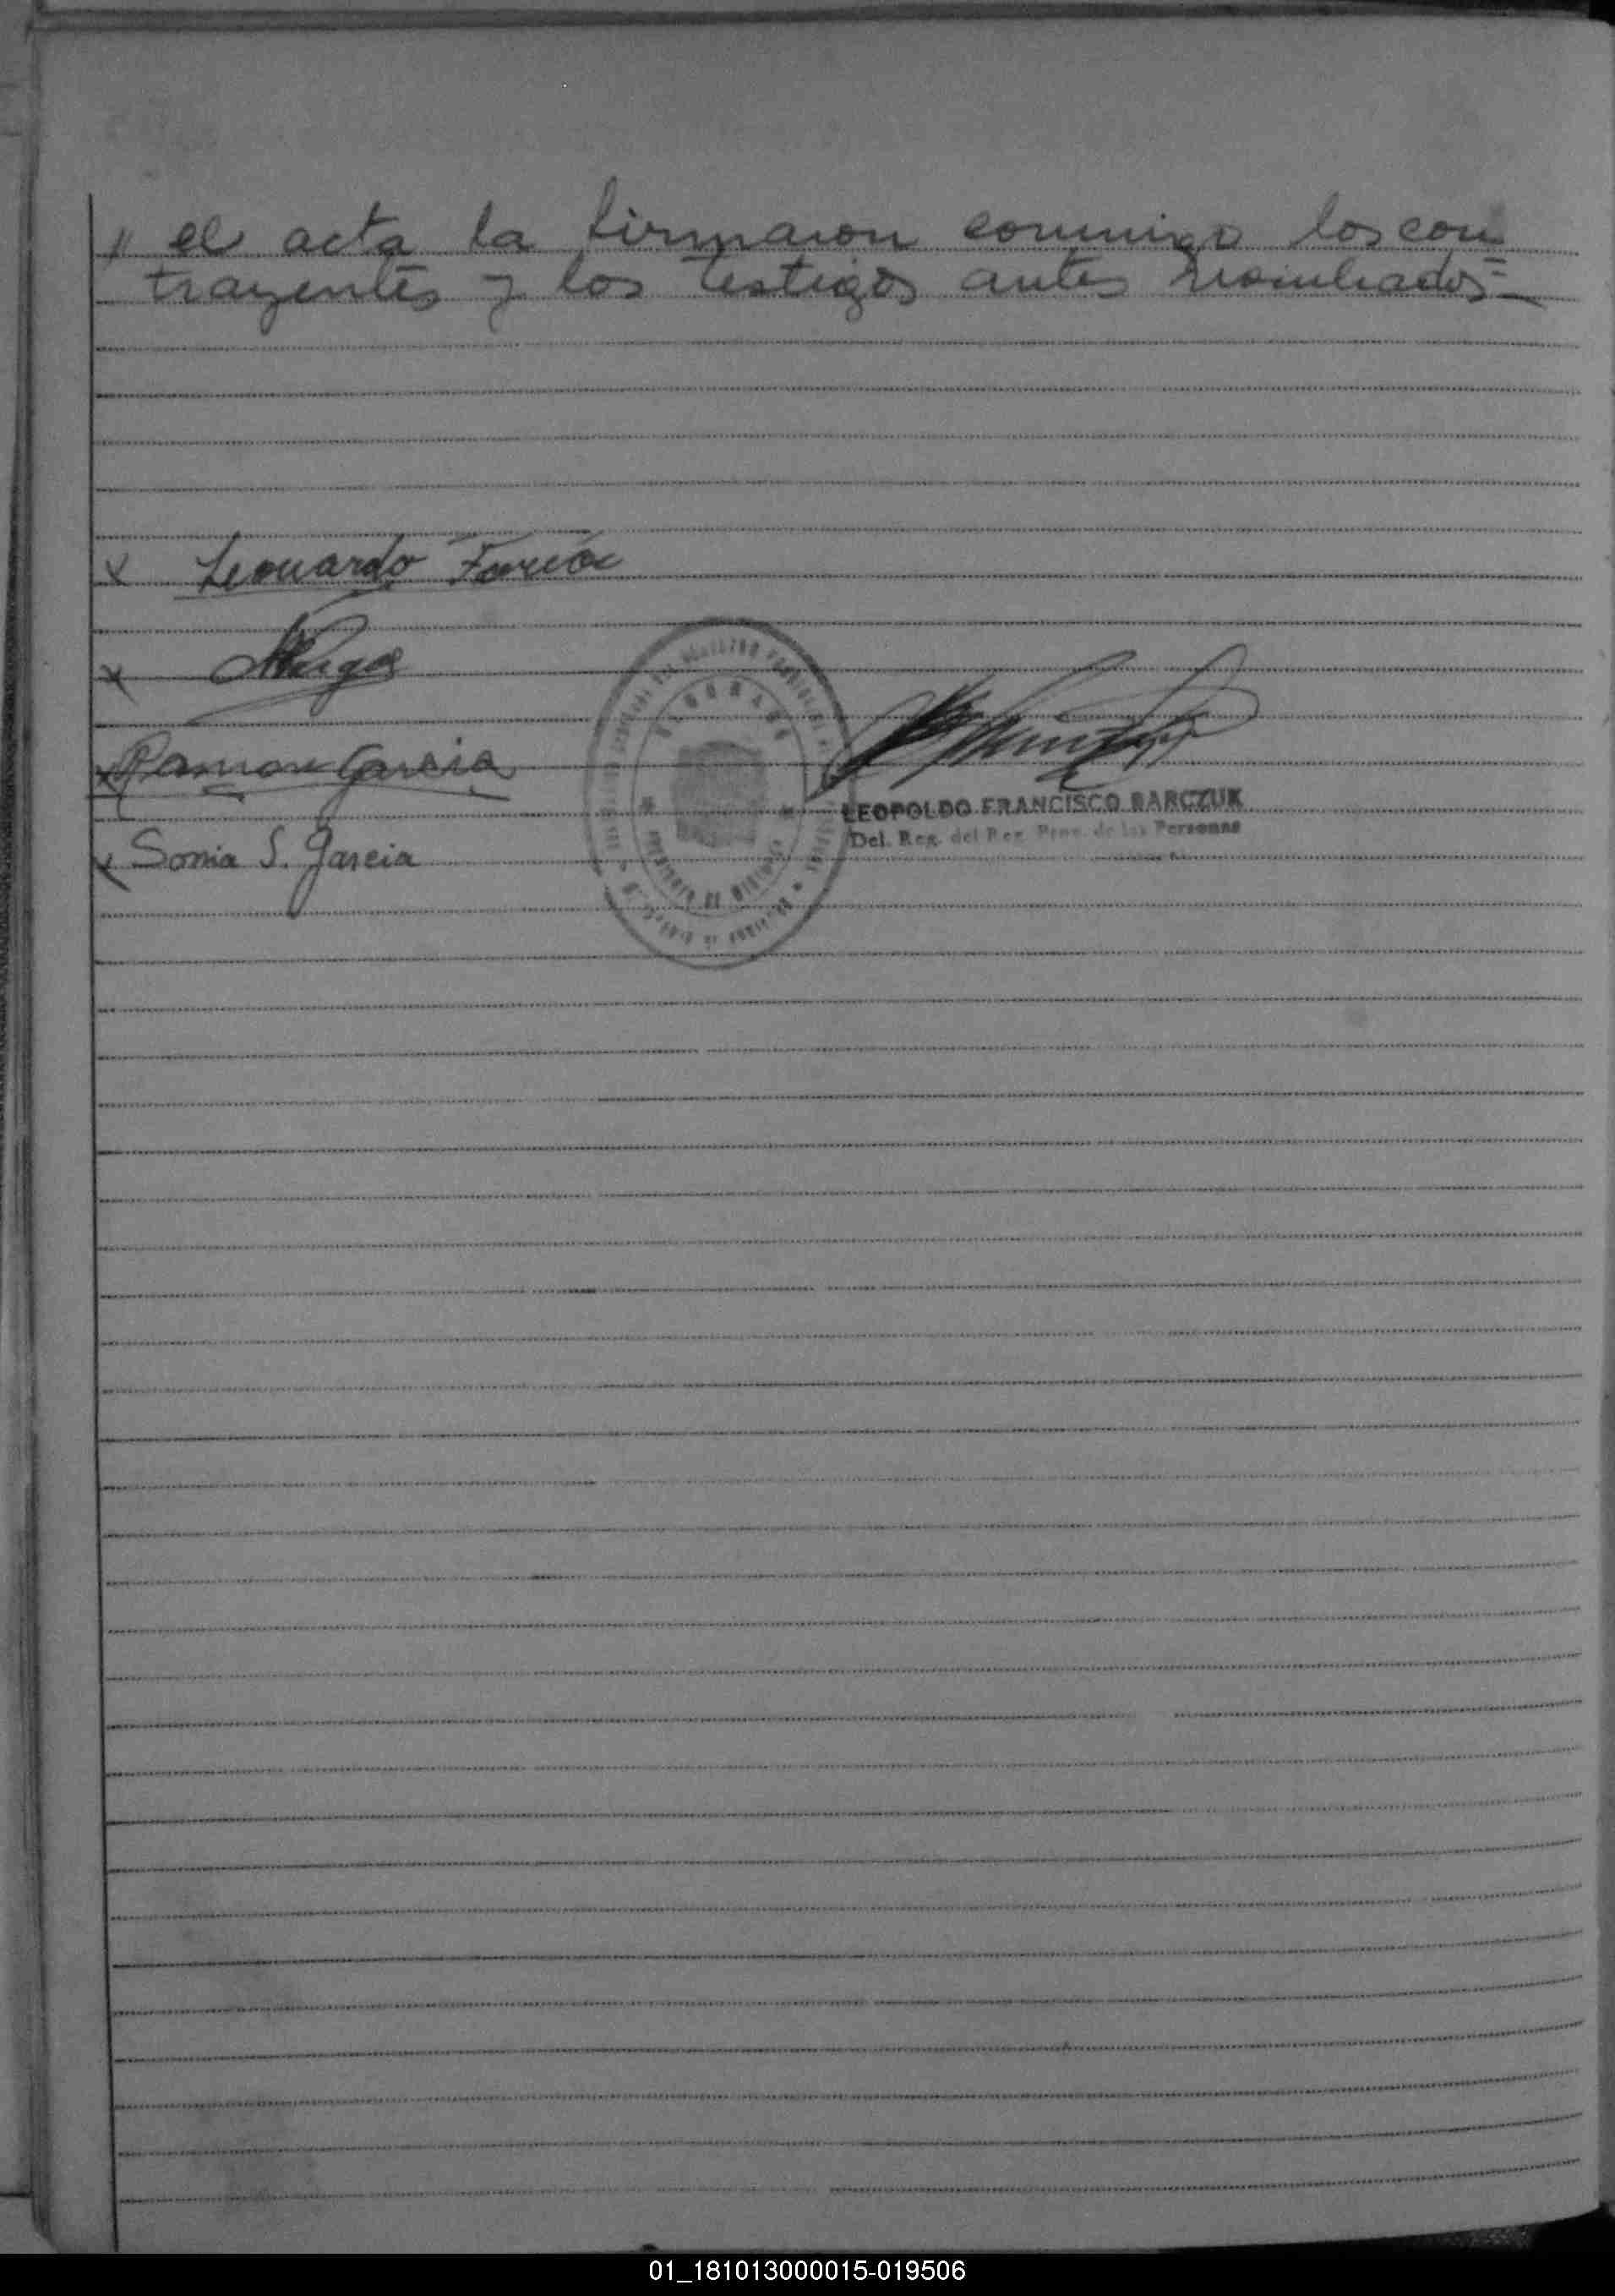 // el acta la firmaron conmigo los con=
trayentes y los testigos antes nombrados=
x Leonardo Farías
x
x Ramon Garcia
x Sonia S. Garcia
LEOPOLDO FRANCISCO BARCZUK
Del. Reg. del Reg. Prov. de las Personas
01_181013000015-019506